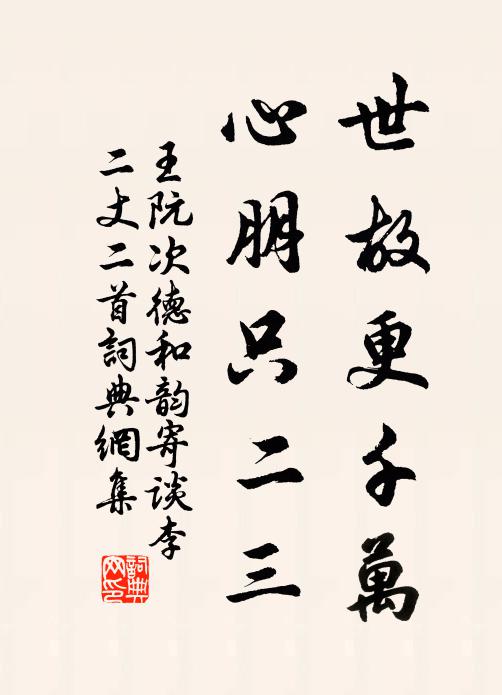 世故更千萬
心朋只二三
王阮次德和韵寄谈李
二丈二首詞典網集
詞典网印